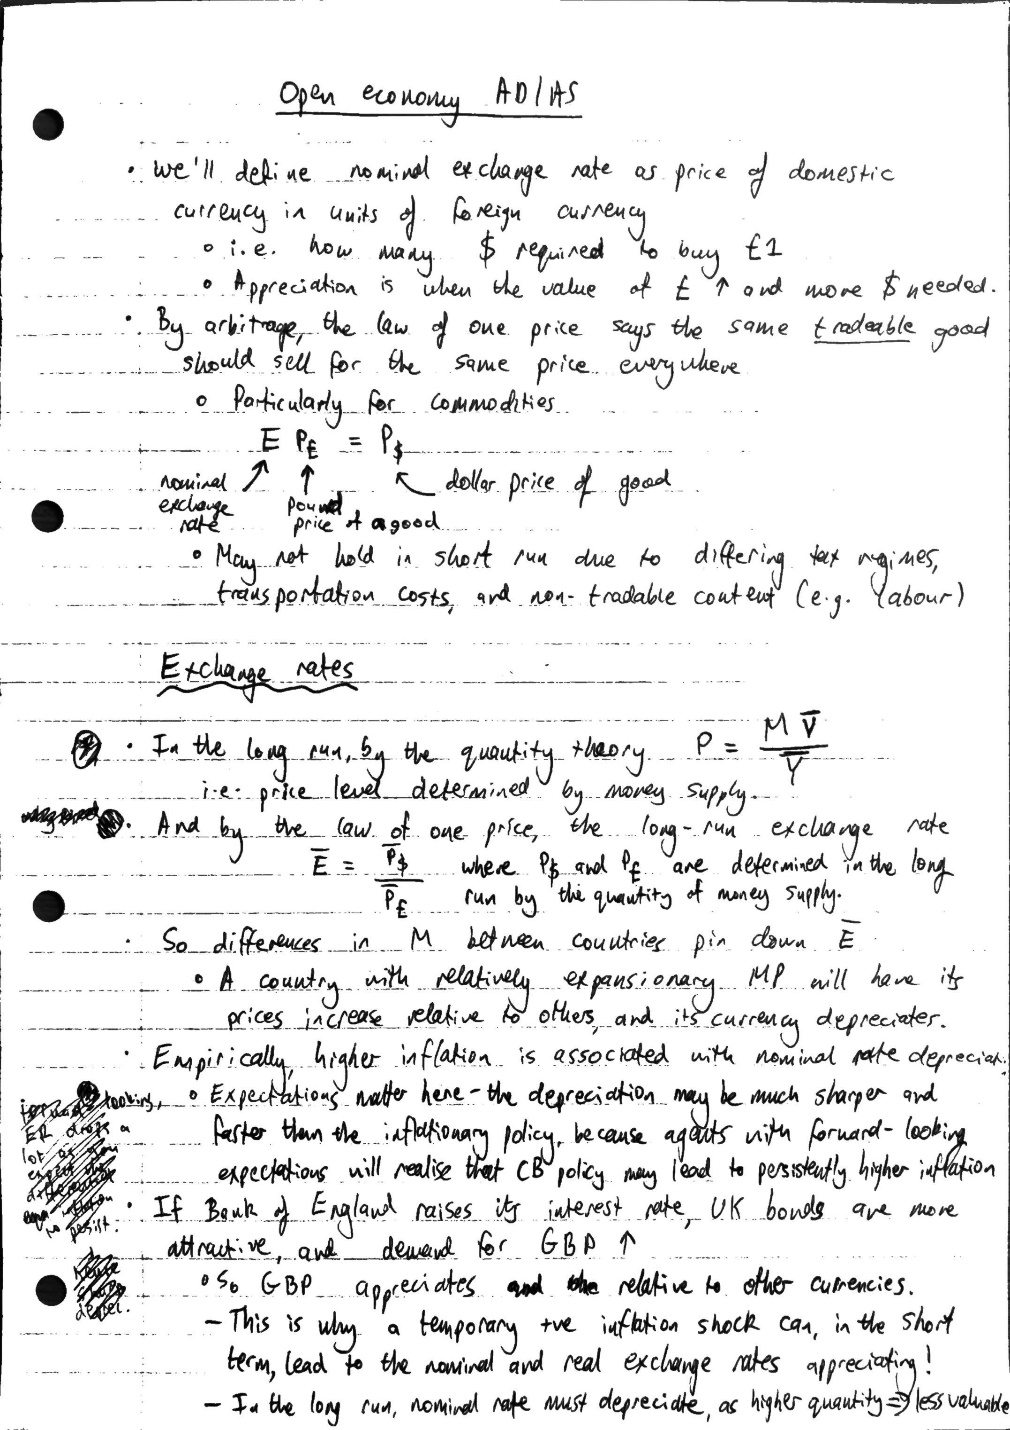 Open economy AD/AS
• We'll define nominal exchange rate as price of domestic
currency in units of foreign currency
o i.e. how many $ required to buy £1
o Appreciation is when the value of £ ↑ and more $ needed.
• By arbitrage, the law of one price says the same tradeable good
should sell for the same price everywhere
o Particularly for commodities
E P£ = P$
nominal exchange rate
pound price of a good
dollar price of good
o May not hold in short run due to differing tax regimes,
transportation costs, and non-tradable content (e.g. labour)
Exchange rates
• In the long run, by the quantity theory P = M V̅ / Y̅
i.e. price level determined by money supply.
• And by the law of one price, the long-run exchange rate
E̅ = P̅$ / P̅£ where P$ and P£ are determined in the long
run by the quantity of money supply.
• So differences in M between countries pin down E̅
o A country with relatively expansionary MP will have its
prices increase relative to others, and its currency depreciates.
• Empirically, higher inflation is associated with nominal rate depreciat.
looking,
ER drops a
lot as
expect the
persist.
o Expectations matter here - the depreciation may be much sharper and
faster than the inflationary policy, because agents with forward-looking
expectations will realise that CB policy may lead to persistently higher inflation
• If Bank of England raises its interest rate, UK bonds are more
attractive, and demand for GBP ↑
o So GBP appreciates relative to other currencies.
– This is why a temporary +ve inflation shock can, in the short
term, lead to the nominal and real exchange rates appreciating!
– In the long run, nominal rate must depreciate, as higher quantity => less valuable